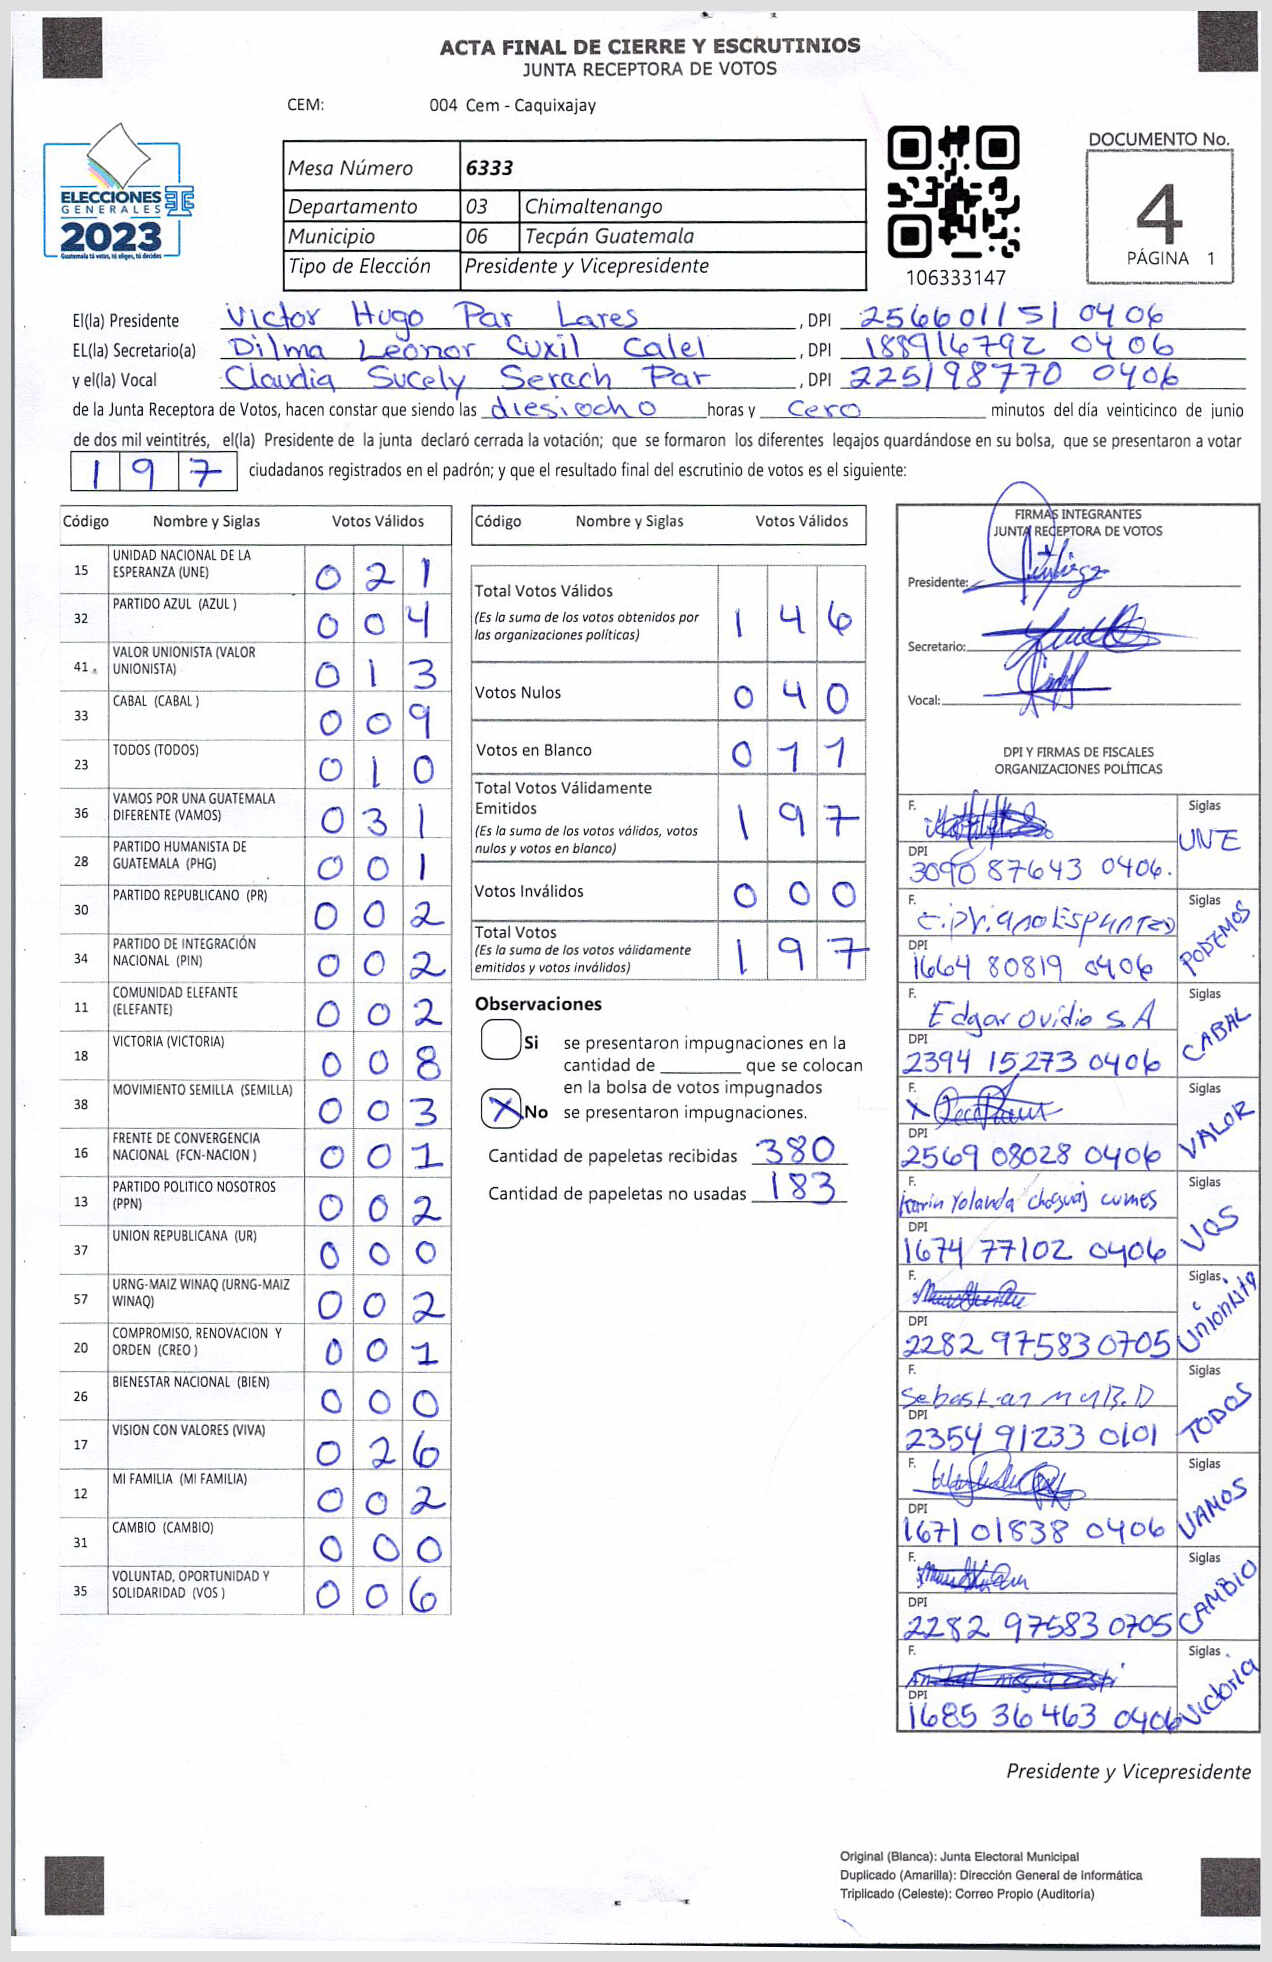 ACTA FINAL DE CIERRE Y ESCRUTINIOS
JUNTA RECEPTORA DE VOTOS
CEM: 004 Cem - Caquixajay
ELECCIONES
GENERALES
2023
Guatemala tú votas, tú eliges, tú decides
Mesa Número 6333
Departamento 03 Chimaltenango
Municipio 06 Tecpán Guatemala
Tipo de Elección Presidente y Vicepresidente
106333147
DOCUMENTO No.
4
PÁGINA 1
El(la) Presidente Victor Hugo Par Lares , DPI 256601151 0406
EL(la) Secretario(a) Dilma Leonor Cuxil Calel , DPI 188916792 0406
y el(la) Vocal Claudia Sucely Serech Par , DPI 225198770 0406
de la Junta Receptora de Votos, hacen constar que siendo las diesiocho horas y cero minutos del día veinticinco de junio
de dos mil veintitrés, el(la) Presidente de la junta declaró cerrada la votación; que se formaron los diferentes legajos quardándose en su bolsa, que se presentaron a votar
197 ciudadanos registrados en el padrón; y que el resultado final del escrutinio de votos es el siguiente:
Código Nombre y Siglas Votos Válidos
15 UNIDAD NACIONAL DE LA ESPERANZA (UNE) 0 2 1
32 PARTIDO AZUL (AZUL ) 0 0 4
41 VALOR UNIONISTA (VALOR UNIONISTA) 0 1 3
33 CABAL (CABAL ) 0 0 9
23 TODOS (TODOS) 0 1 0
36 VAMOS POR UNA GUATEMALA DIFERENTE (VAMOS) 0 3 1
28 PARTIDO HUMANISTA DE GUATEMALA (PHG) 0 0 1
30 PARTIDO REPUBLICANO (PR) 0 0 2
34 PARTIDO DE INTEGRACIÓN NACIONAL (PIN) 0 0 2
11 COMUNIDAD ELEFANTE (ELEFANTE) 0 0 2
18 VICTORIA (VICTORIA) 0 0 8
38 MOVIMIENTO SEMILLA (SEMILLA) 0 0 3
16 FRENTE DE CONVERGENCIA NACIONAL (FCN-NACION ) 0 0 1
13 PARTIDO POLITICO NOSOTROS (PPN) 0 0 2
37 UNION REPUBLICANA (UR) 0 0 0
57 URNG-MAIZ WINAQ (URNG-MAIZ WINAQ) 0 0 2
20 COMPROMISO, RENOVACION Y ORDEN (CREO ) 0 0 1
26 BIENESTAR NACIONAL (BIEN) 0 0 0
17 VISION CON VALORES (VIVA) 0 2 6
12 MI FAMILIA (MI FAMILIA) 0 0 2
31 CAMBIO (CAMBIO) 0 0 0
35 VOLUNTAD, OPORTUNIDAD Y SOLIDARIDAD (VOS ) 0 0 6
Código Nombre y Siglas Votos Válidos
Total Votos Válidos
(Es la suma de los votos obtenidos por
las organizaciones políticas) 1 4 6
Votos Nulos 0 4 0
Votos en Blanco 0 1 1
Total Votos Válidamente
Emitidos
(Es la suma de los votos válidos, votos
nulos y votos en blanco) 1 9 7
Votos Inválidos 0 0 0
Total Votos
(Es la suma de los votos válidamente
emitidos y votos inválidos) 1 9 7
Observaciones
Si se presentaron impugnaciones en la
cantidad de ________ que se colocan
en la bolsa de votos impugnados
X No se presentaron impugnaciones.
Cantidad de papeletas recibidas 380
Cantidad de papeletas no usadas 183
FIRMAS INTEGRANTES
JUNTA RECEPTORA DE VOTOS
Presidente:
Secretario:
Vocal:
DPI Y FIRMAS DE FISCALES
ORGANIZACIONES POLÍTICAS
F. Siglas UNE
DPI
3090 87643 0406.
F. Siglas PODEMOS
DPI
1664 80819 0406
F. Edgar Ovidio S.A Siglas CABAL
DPI
2394 15273 0406
F. X Siglas VALOR
DPI
2569 08028 0406
F. Karin Yolanda cumes Siglas VOS
DPI
1674 77102 0406
F. Siglas Unionista
DPI
2282 97583 0705
F. Siglas TODOS
DPI
2354 91233 0101
F. Siglas VAMOS
DPI
1671 01838 0406
F. Siglas CAMBIO
DPI
2282 97583 0705
F. Siglas Victoria
DPI
1685 36463 0406
Presidente y Vicepresidente
Original (Blanca): Junta Electoral Municipal
Duplicado (Amarilla): Dirección General de Informática
Triplicado (Celeste): Correo Propio (Auditoria)